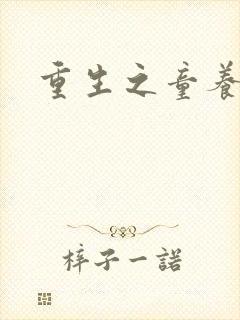 重生之童养
梓子一諾